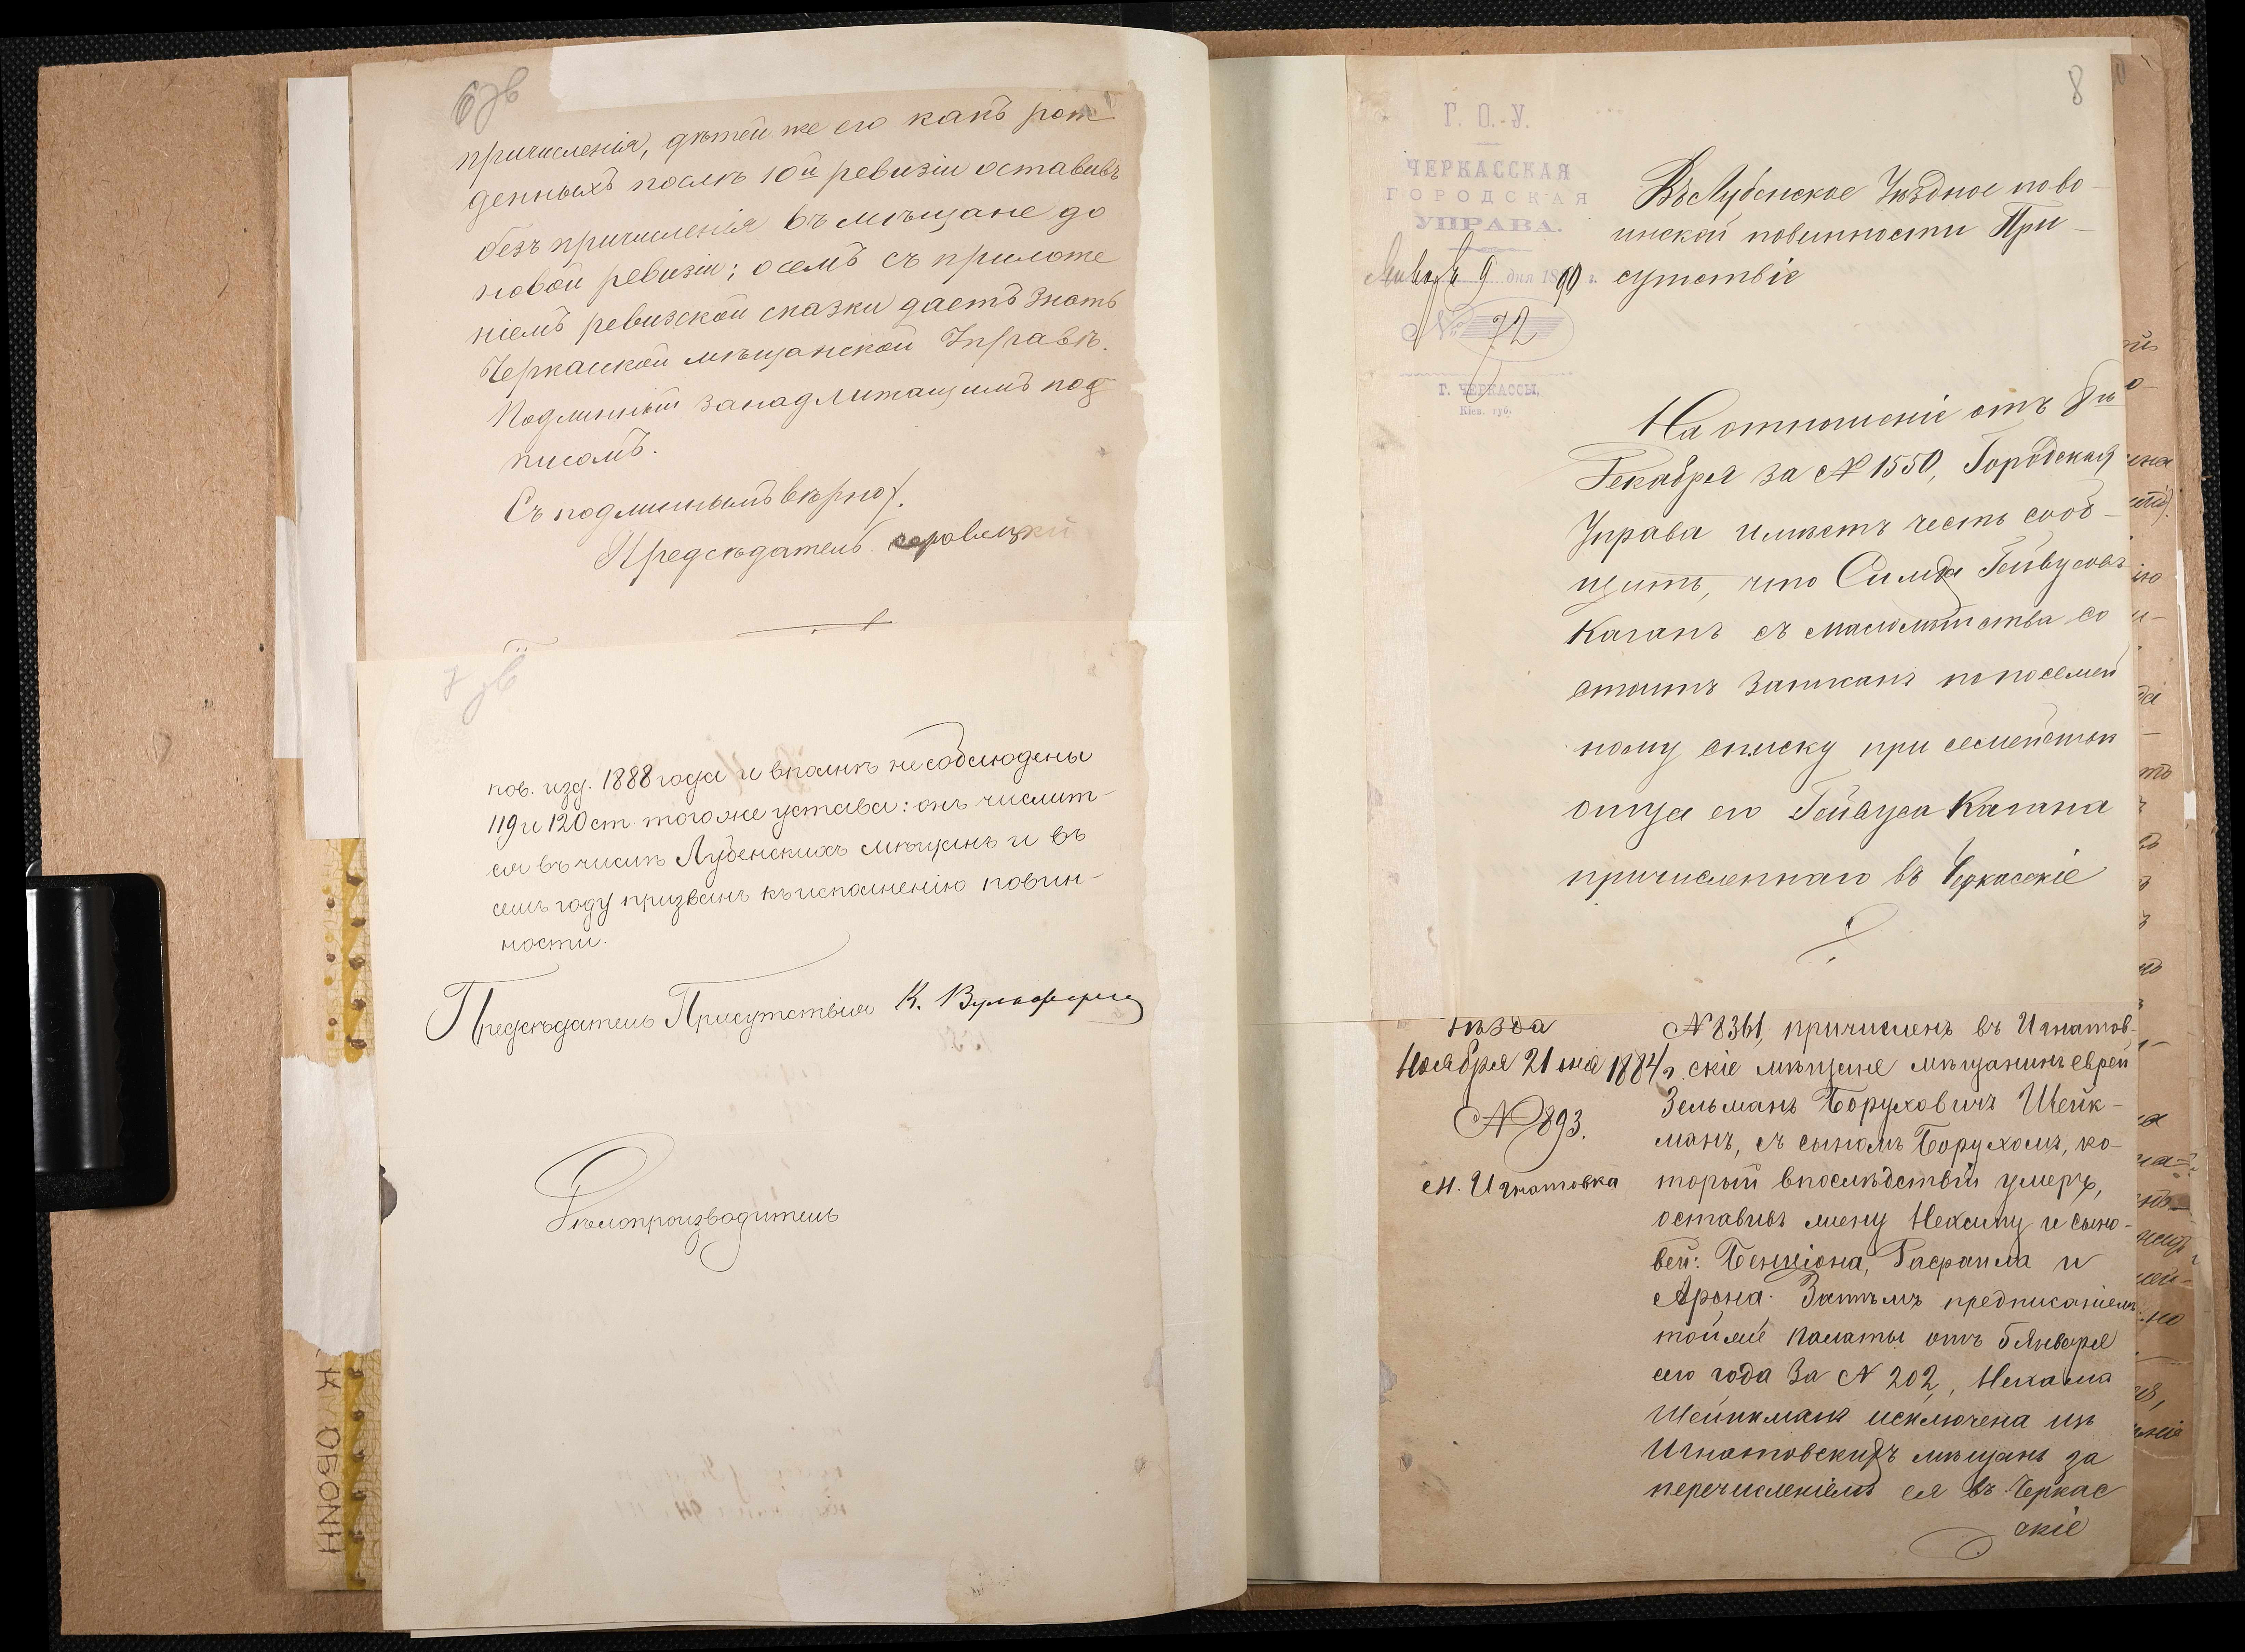 6 зв
причисленія, дѣтей же его какъ рож
денныхъ послѣ 10й ревизіи оставивъ
безъ причисленія въ мѣщане до
новой ревизіи; о семъ съ приложе
ніемъ ревизской сказки даетъ знать
Черкаской мѣщанской Управѣ.
Подлинный за надлижащимъ под
писомъ.
Съ подлинымъ вѣрно.
Предсѣдатель
7 зв
пов. изд. 1888 года и вполнѣ не соблюдены
119 и 120 ст. того же устава: онъ числит-
ся въ числѣ Лубенскихъ мѣщанъ и въ
семъ году призванъ къ исполненію повин-
ности.
Предсѣдатель Присутствія К.
Дѣлопроизводитель
8
Г. О.-У.
ЧЕРКАССКАЯ
ГОРОДСКАЯ
УПРАВА.
Января 9 дня 1890 г.
№ 72
Г. ЧЕРКАССЫ,
Кіев. губ.
Въ Лубенское Уѣздное по во-
инской повинности При-
сутствіе
На отношеніе отъ 8го
Декабря за № 1550, Городская
Управа имѣетъ честь сооб-
щить, что Симха Гейвусовъ
Каганъ съ малолѣтства со
стоитъ записанъ по посемей
ному списку при семействѣ
отца его Гейвуса Кагана
причисленнаго въ Черкасскіе
уѣзда
Ноября 21 дня 1884 г.
№ 893.
м. Игнатовка
№ 8361, причисленъ въ Игнатов-
скіе мѣщане мѣщанинъ еврей
Зельманъ Боруховичъ Шейк-
манъ, съ сыномъ Борухомъ, ко-
торый впослѣдствіи умеръ,
оставивъ жену Нехаму и сыно-
вей: Бенціона, Рафаила и
Арона. Затѣмъ предписаніемъ
той же Палаты отъ 5 Января
сего года за № 202, Нехама
Шейкманъ исключена изъ
Игнатовскихъ мѣщанъ за
перечисленіемъ ея въ Черкас
скіе